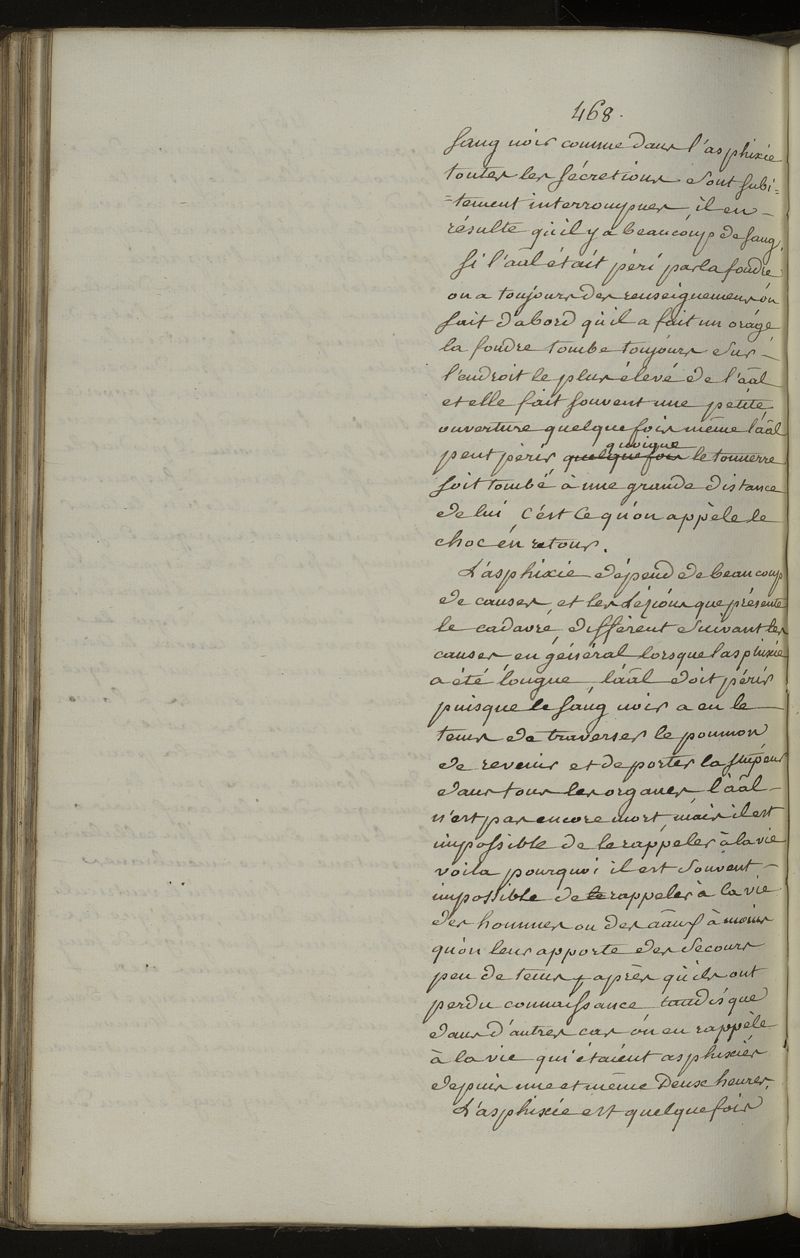 468.
sang noir comme dans l'asphixie
toutes les sécretions sont subi=
=tement interrompues, il en –
résulte qu'il y a beaucoup de sang,
si l'aāl était péri par la foudre
on a toujours des renseignemens on
sait d'abord qu'il a fait un orage
la foudre tombe toujours sur –
l'endroit le plus élevé de l'aāl
et elle fait souvent une petite
ouverture quelque fois même l'aāl
quoique
peut périr quelque fois le tonnerre
soit tombé à une grande distance
de lui, c'est ce qu'on appèle le
choc en retour.
L'asphixie dépend de beaucoup
de causes, et les lésions que présente
le cadavre diffèrent suivant les
causes en général lorsque l'asphixie
a été longue l'aāl doit périr
puisque le sang noir a eu le –
tems de traverser le poumon
de revenir et de porter la stupeur
dans tous les organes l'aāl –
n'est pas encore mort mais il est
impossible de le rappeler à la vie
voila pourquoi il est souvent –
impossible de le rappeler à la vie
des hommes ou des aāux à moins
qu'on leur apporte des secours
peu de tems après qu'ils ont
perdu connaissance tandis que
dans d'autres cas on en rappèle
à la vie qui étaient asphixiés
depuis une et même Deux heures.
L'asphixie est quelque fois